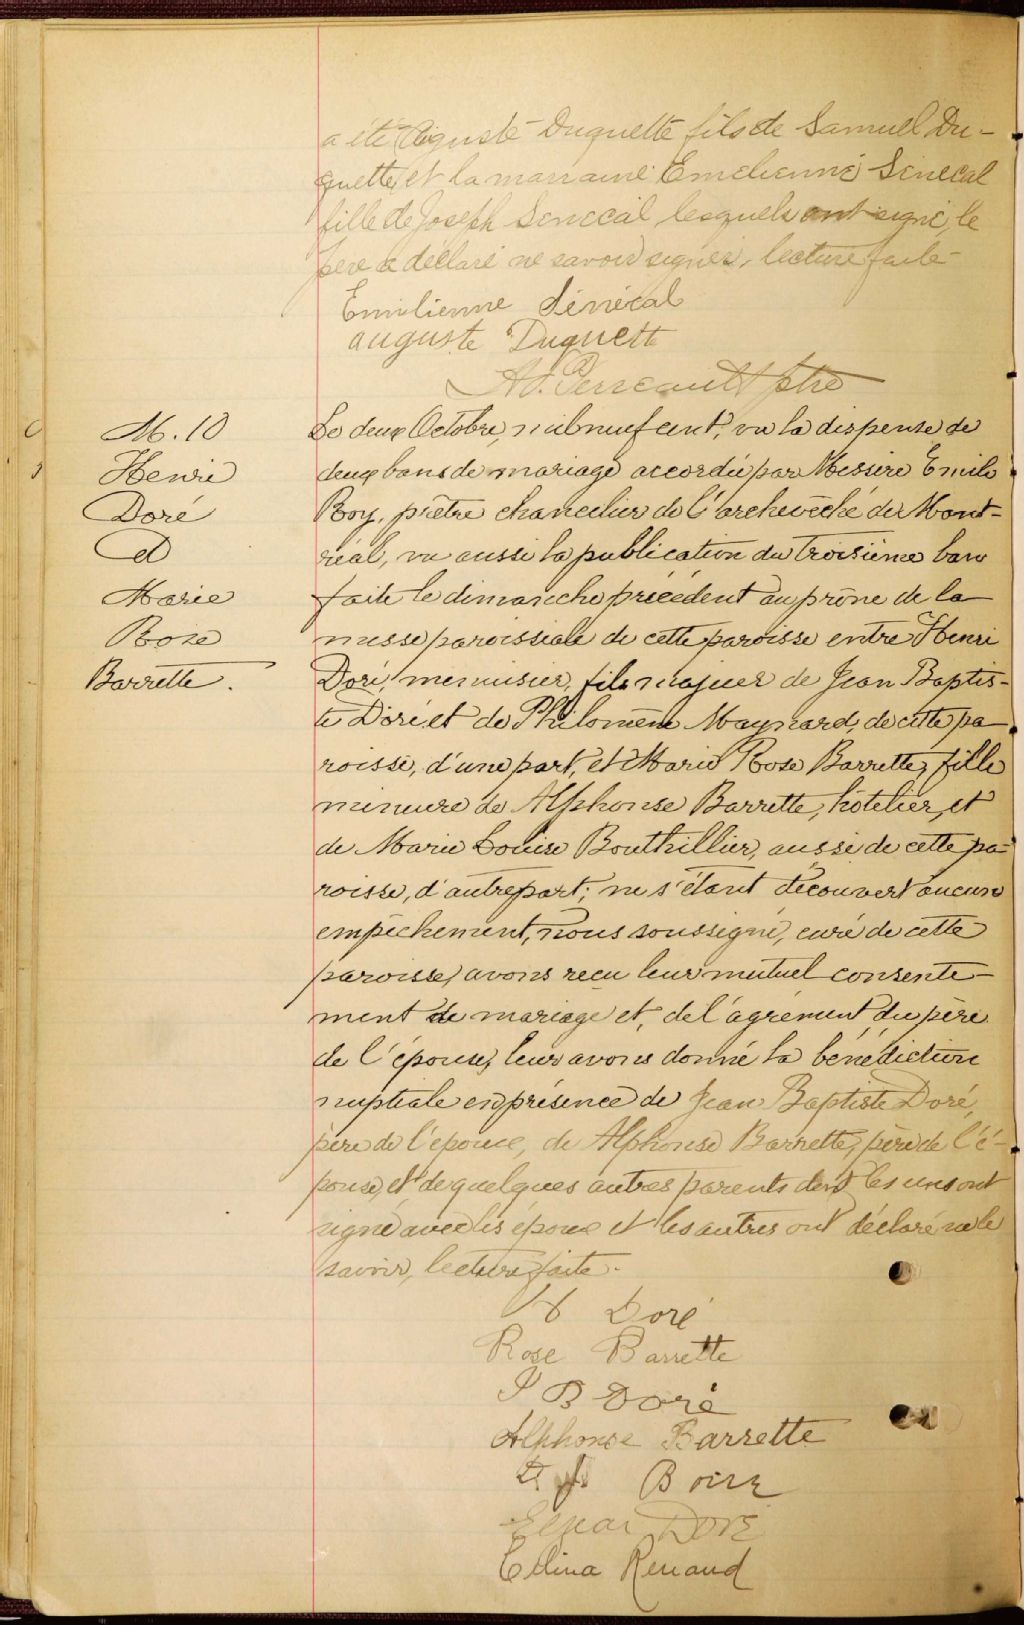 a été Auguste Duquette fils de Samuel Du-
quette, et la marraine Emelienne Senecal
fille de Joseph Senecal lesquels ont signé, le
père a déclaré ne savoir signer, lecture faite
Emilienne Sénécal
auguste Duquette
Perreault ptre
M. 10
Henri
Doré
et
Marie
Rose
Barrette.
Le deux Octobre, mil neuf cent, vu la dispense de
deux bans de mariage accordée par Messire Emile
Roy, prêtre chancelier de l'archevêché de Mont-
réal, vu aussi la publication du troisième ban
faite le dimanche précédent au prône de la
messe paroissiale de cette paroisse entre Henri
Doré, menuisier, fils majeur de Jean Baptis-
te Doré et de Philomène Maynard, de cette pa-
roisse, d'une part, et Marie Rose Barrette, fille
mineure de Alphonse Barrette, hôtelier, et
de Marie Louise Bouthillier, aussi de cette pa-
roisse, d'autre part; ne s'étant découvert aucun
empêchement, nous soussigné, curé de cette
paroisse, avons reçu leur mutuel consente-
ment de mariage et, de l'agrément du père
de l'épouse, leur avons donné la bénédiction
nuptiale en présence de Jean Baptiste Doré,
père de l'époux, de Alphonse Barrette, père de l'é-
pouse, et de quelques autres parents dont les uns ont
signé avec les époux et les autres ont déclaré ne le
savoir, lecture faite.
H Doré
Rose Barrette
J B Doré
Alphonse Barrette
Doré
Celina Renaud